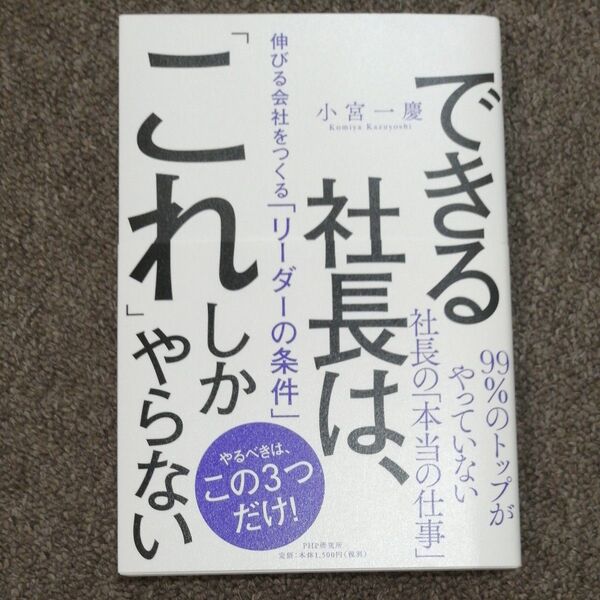 できる
社長は、
「これ」しか
やらない
小宮一慶
Komiya Kazuyoshi
伸びる会社をつくる「リーダーの条件」
99%のトップが
やっていない
社長の「本当の仕事」
やるべきは、
この3つ
だけ!
PHP研究所
定価:本体1,500円(税別)